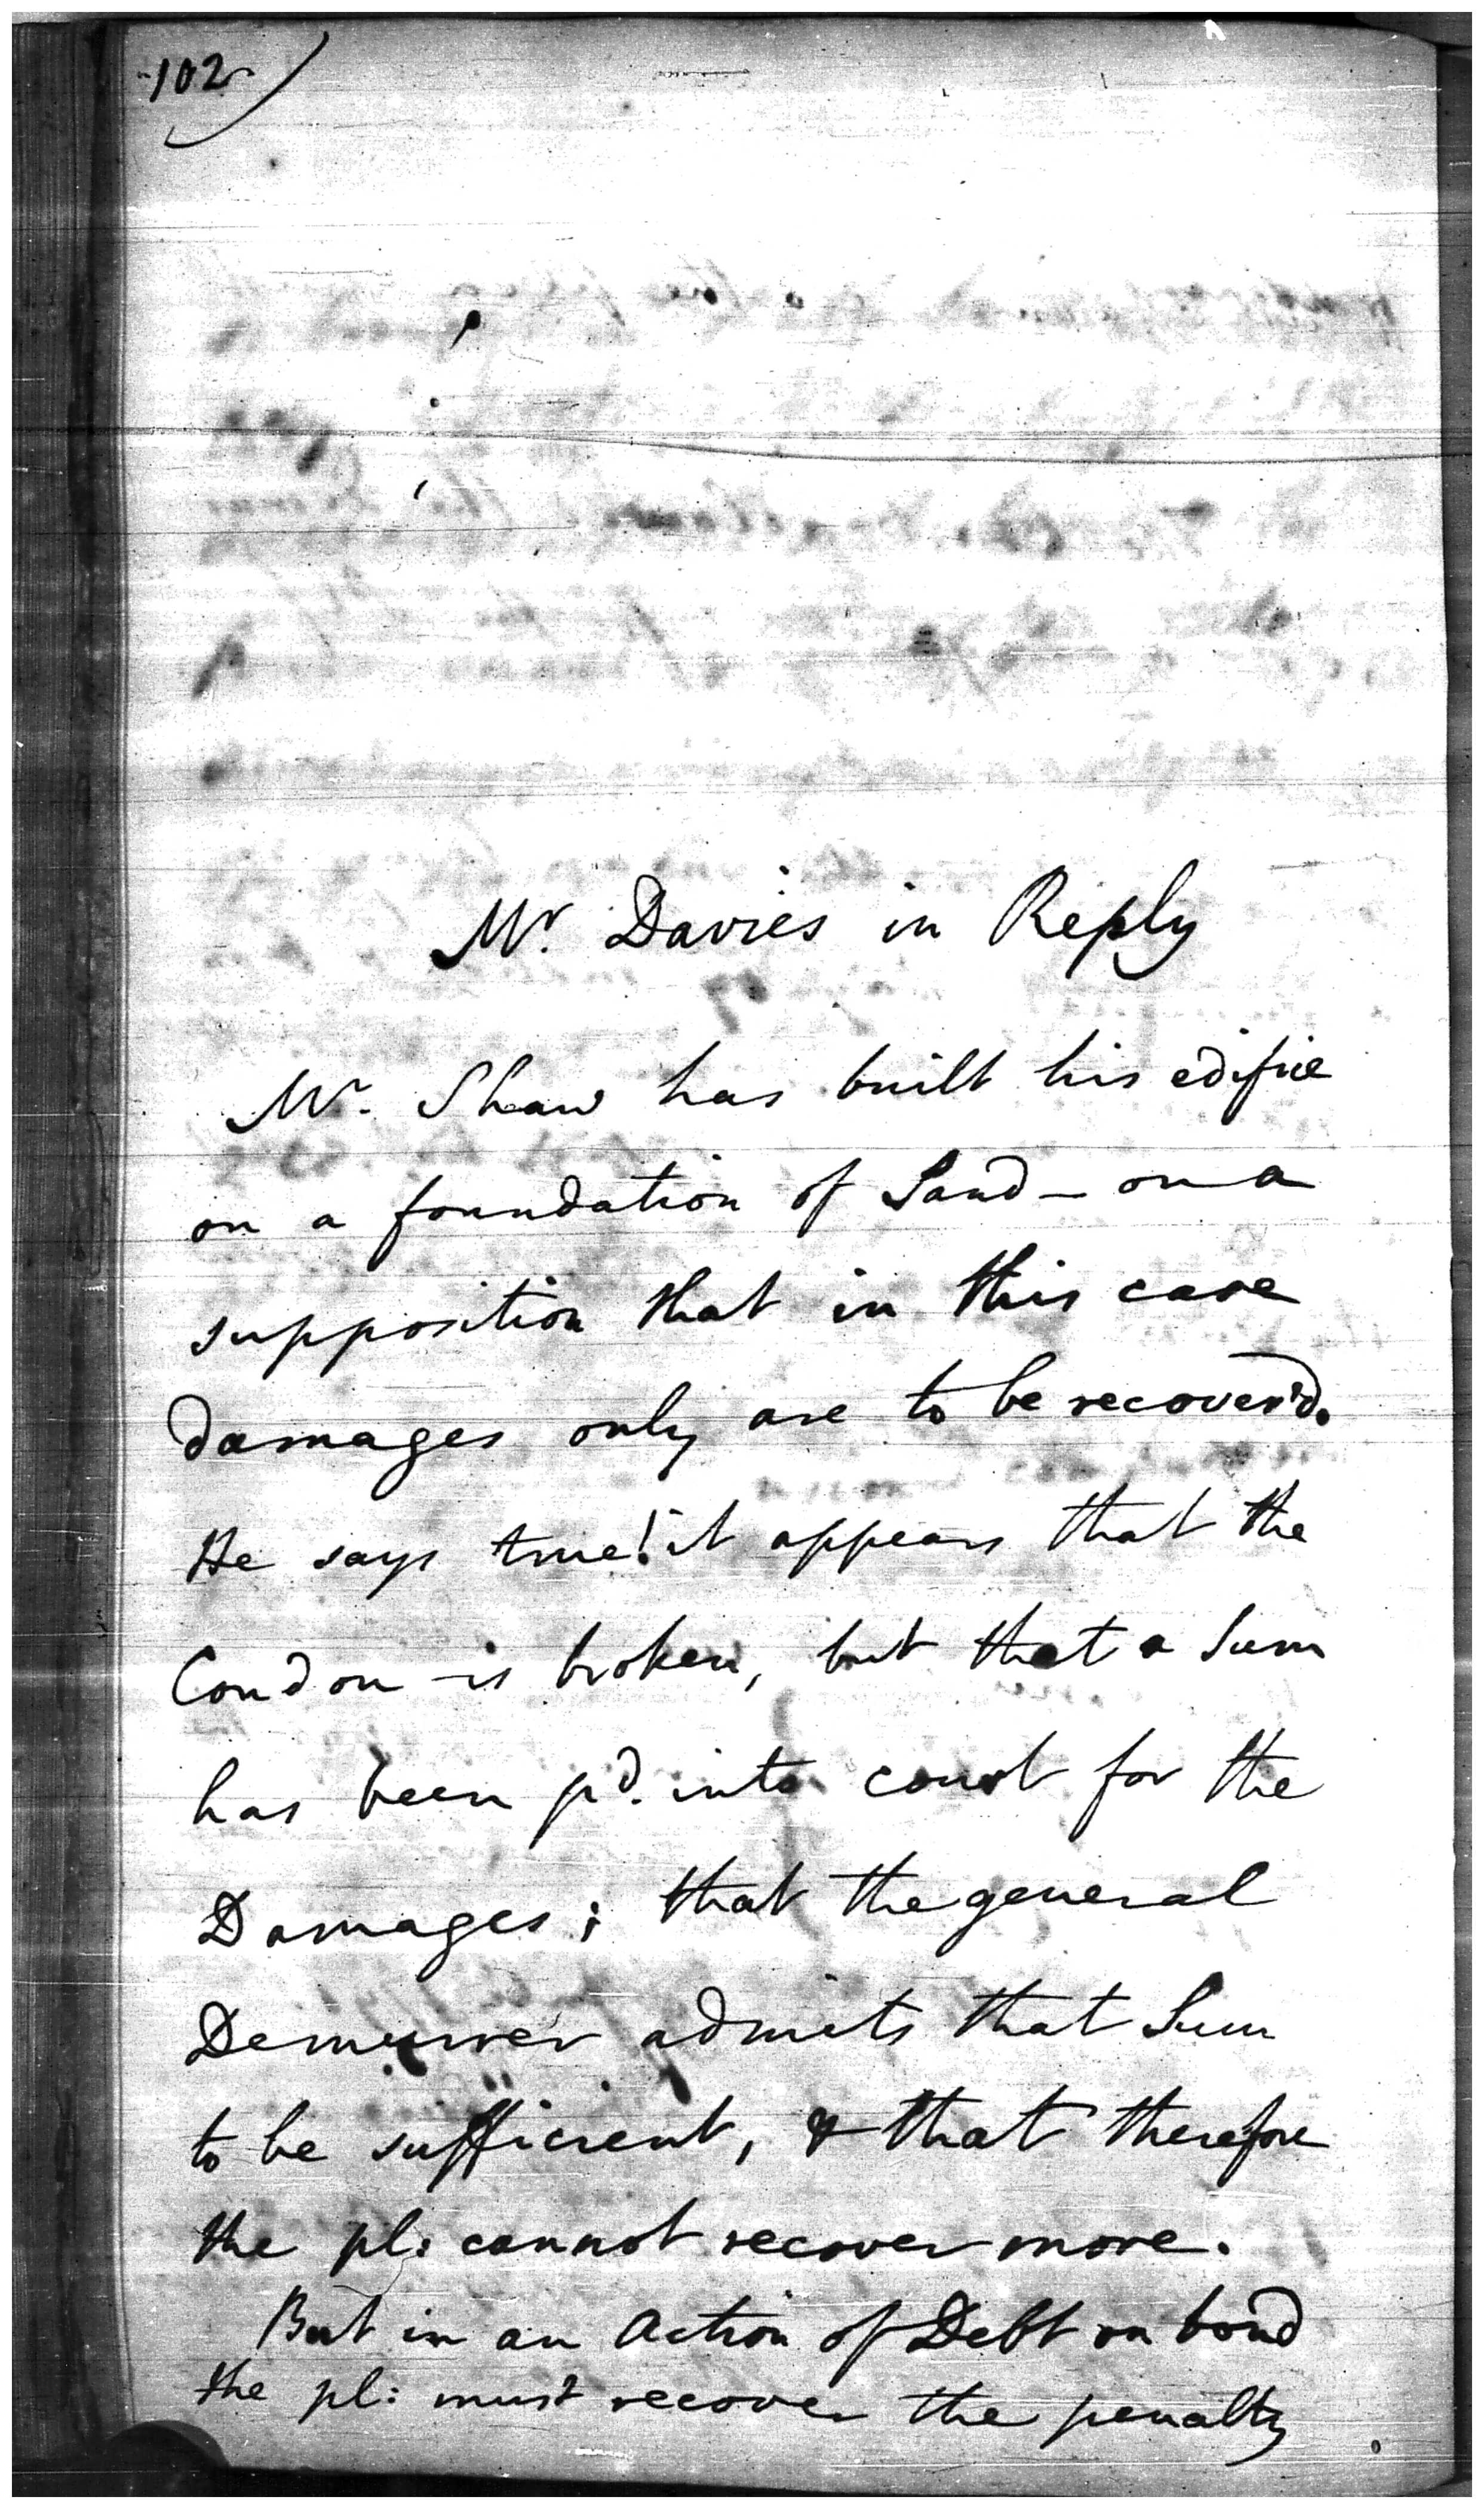 102
Mr. Davies in Reply
Mr. Shaw has built his edifice
on a foundation of Sand - on a
supposition that in this case
damages only are to be recover'd.
He says true! it appears that the
Condon is broken, but that a Sum
has been pd. into court for the
Damages; that the general
Demurrer admits that Sum
to be sufficient, & that therefore
the pl: cannot recover more.
But in an Action of Debt on bond
the pl: must recover the penalty